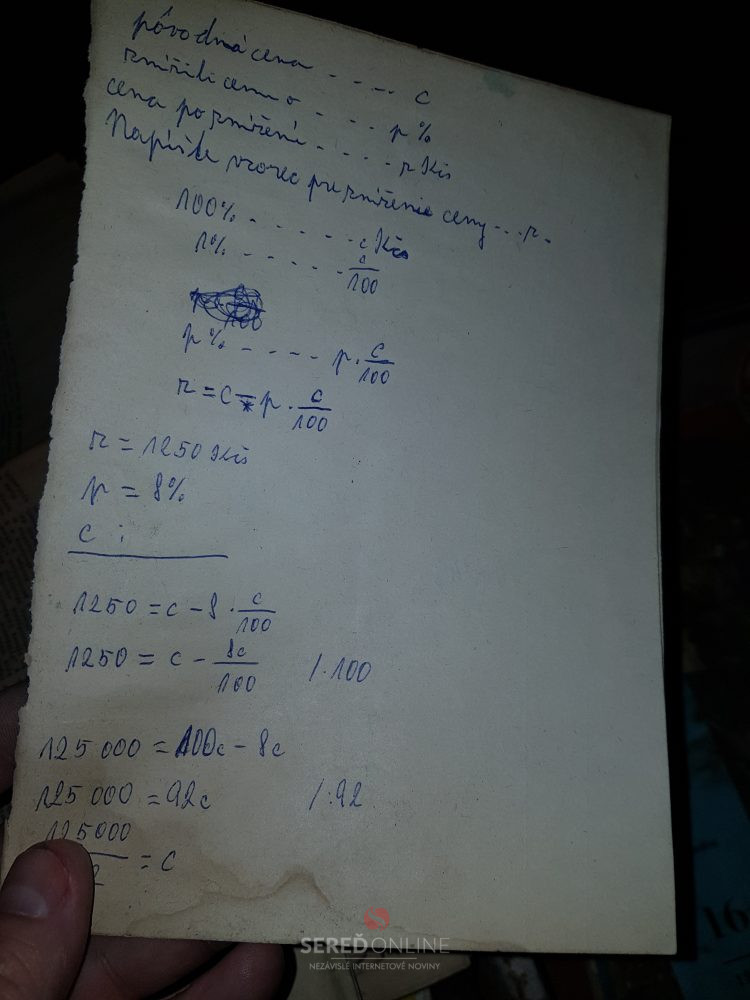 pôvodná cena ..... c
znížili cenu o ..... p %
cena po znížení ..... z Kčs
Napíšte vzorec pre zníženie ceny ... z.
100% ...... c Kčs
1% ...... c/100
p % .... p · c/100
z = c - p · c/100
z = 1250 Kčs
p = 8%
c :
1250 = c - 8 · c/100
1250 = c - 8c/100 /·100
125 000 = 100c - 8c
125 000 = 92c /:92
125000/ 2 = c
SEREĎONLINE
NEZÁVISLÉ INTERNETOVÉ NOVINY